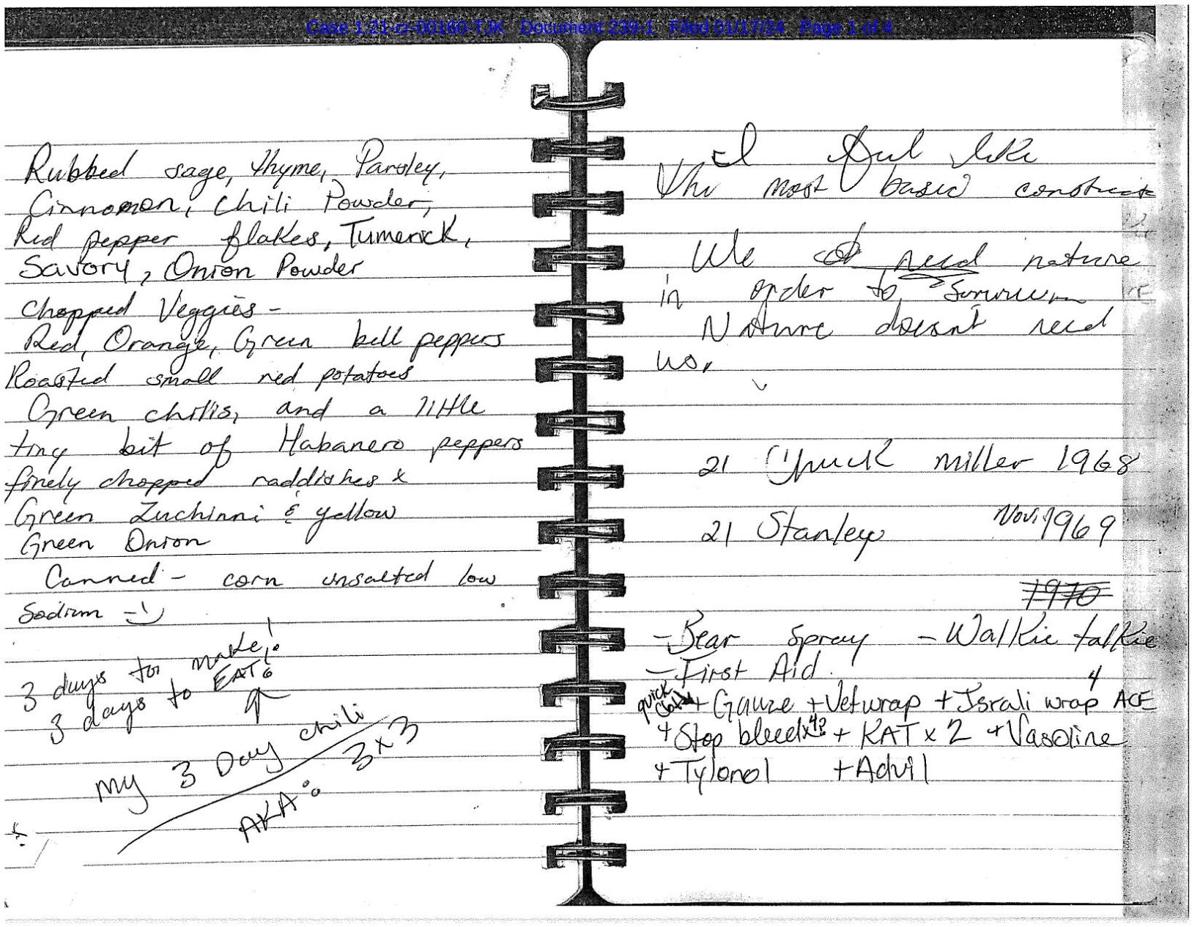 Case 1:21-cr-00160-TJK Document 239-1 Filed 01/17/24 Page 1 of 4
Rubbed sage, thyme, Parsley,
Cinnamon, Chili Powder,
Red pepper flakes, Tumerick,
Savory, Onion Powder
Chopped Veggies -
Red, Orange, Green bell peppers
Roasted small red potatoes
Green chilis, and a little
tiny bit of Habanero peppers
finely chopped raddishes &
Green Zuchinni & yellow
Green Onion
Canned - corn unsalted low
Sodium
3 days to make!
3 days to EAT
my 3 Day chili
AKA: 3x3
I feel like
the most basic construct
We do need nature
in order to
Nature doesnt need
us.
21 Chuck Miller 1968
21 Stanley Nov. 1969
1970
- Bear Spray - Walkie talkie
- First Aid
quick clot + Gauze + Vetwrap + Israli wrap 4 ACE
+ Stop bleed + KAT x 2 + Vasoline
+ Tylonol + Advil